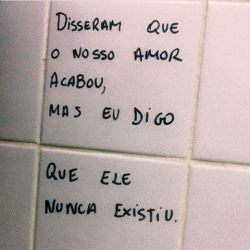 DISSERAM QUE
O NOSSO AMOR
ACABOU,
MAS EU DIGO
QUE ELE
NUNCA EXISTIU.